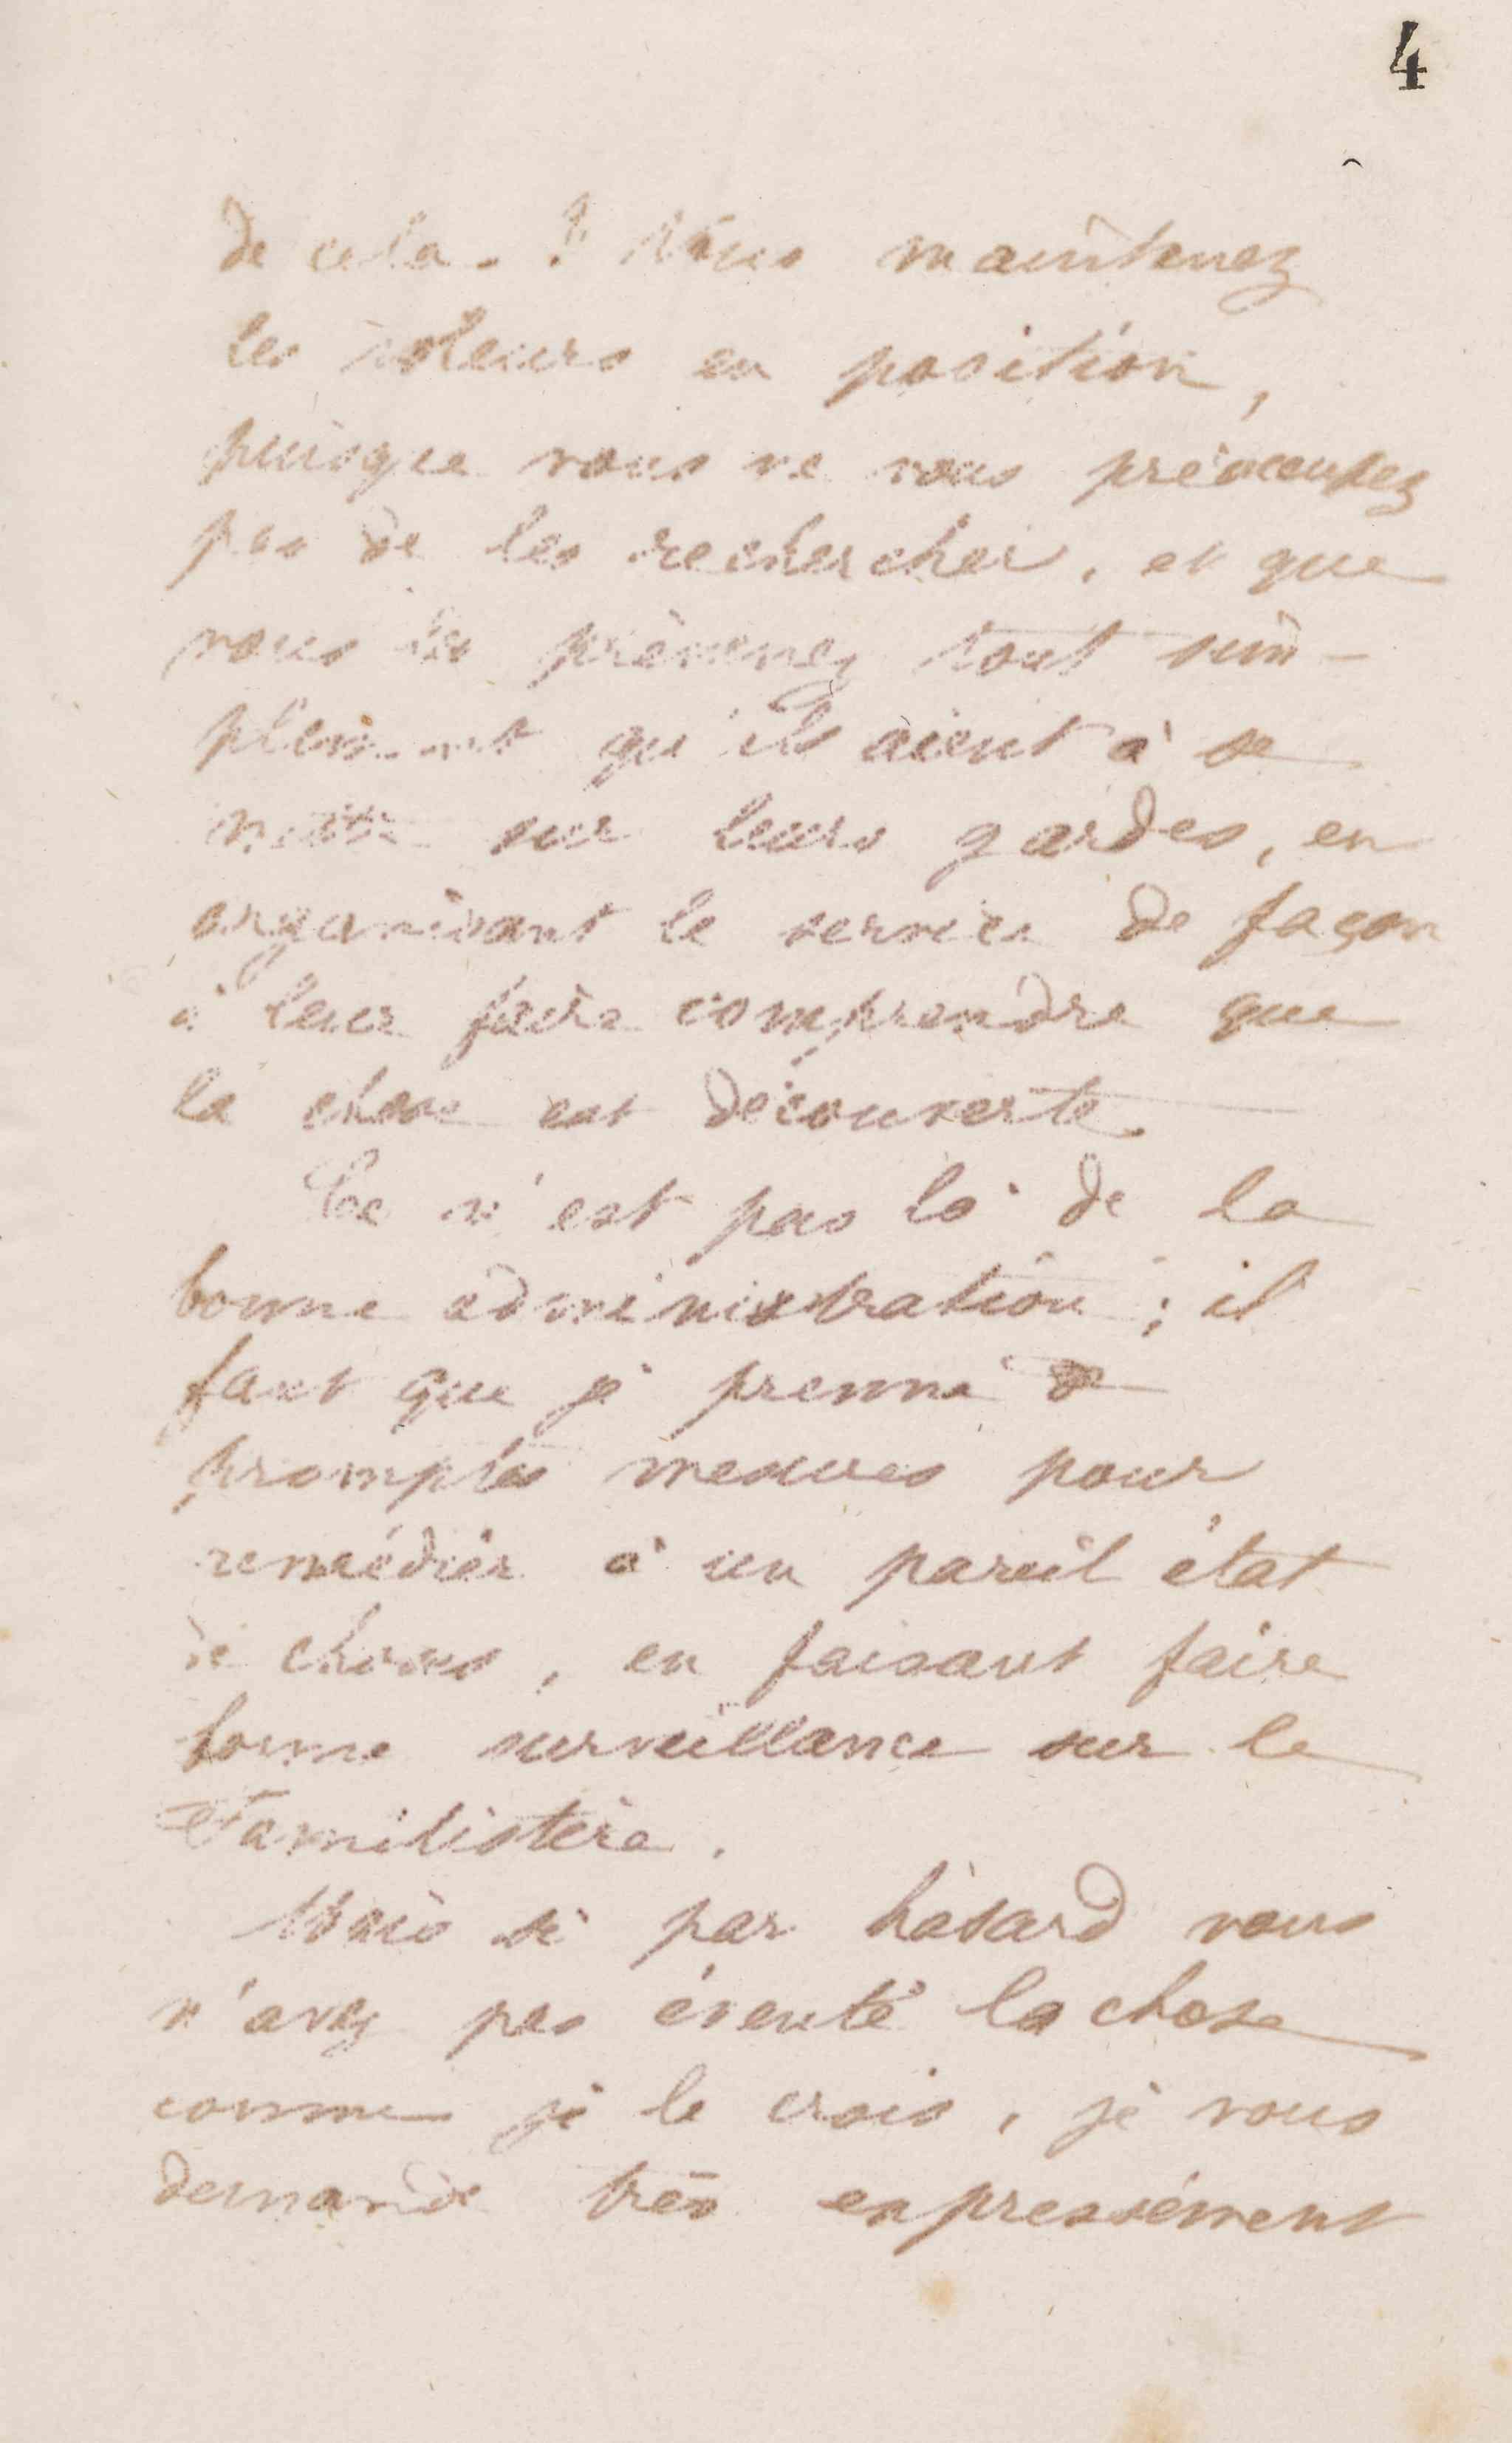 4
de cela. ? Vous maintenez
les voleurs en position,
puisque vous ne vous préoccupez
pas de les rechercher, et que
vous les prévenez tout sim-
plement qu'ils aient à se
mettre sur leurs gardes, en
organisant le service de façon
à leur faire comprendre que
la chose est découverte
Ce n'est pas là de la
bonne administration ; il
faut que je prenne de
promptes mesures pour
remédier à un pareil état
de choses, en faisant faire
bonne surveillance sur le
Familistère.
Mais si par hasard vous
n'avez pas éventé la chose
comme je le crois, je vous
demande très expressément